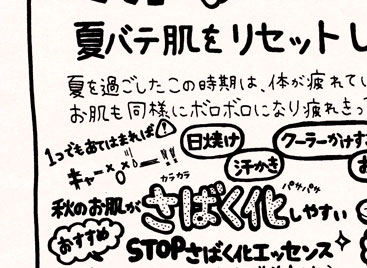 夏バテ肌をリセットし
夏を過ごしたこの時期は、体が疲れてい
お肌も同様にボロボロになり疲れきっ
1つでもあてはまれば
日焼け
クーラーがけす
キャー
!!
汗かき
カラカラ
パサパサ
秋のお肌が
さばく化
しやすい
おすすめ
STOPさばく化エッセンス